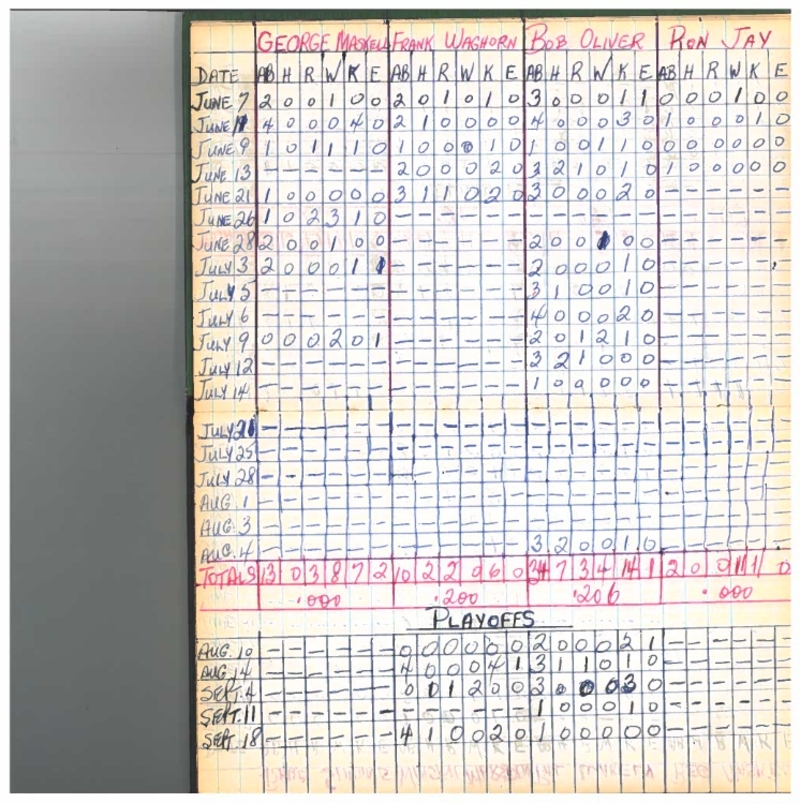 GEORGE MASKELL FRANK WAGHORN BOB OLIVER RON JAY
DATE AB H R W K E AB H R W K E AB H R W K E AB H R W K E
JUNE 7 2 0 0 1 0 0 2 0 1 0 1 0 3 0 0 0 1 1 0 0 0 1 0 0
JUNE 11 4 0 0 0 4 0 2 1 0 0 0 0 4 0 0 0 3 0 1 0 0 0 1 0
JUNE 9 1 0 1 1 1 0 1 0 0 0 1 0 1 0 0 1 1 0 0 0 0 0 0 0
JUNE 13 – – – – – – 2 0 0 0 2 0 3 2 1 0 1 0 1 0 0 0 0 0
JUNE 21 1 0 0 0 0 0 3 1 1 0 2 0 3 0 0 0 2 0 – – – – – –
JUNE 26 1 0 2 3 1 0 – – – – – – – – – – – – – – – – – –
JUNE 28 2 0 0 1 0 0 – – – – – – 2 0 0 1 0 0 – – – – – –
JULY 3 2 0 0 0 1 1 – – – – – – 2 0 0 0 1 0 – – – – – –
JULY 5 – – – – – – – – – – – – 3 1 0 0 1 0 – – – – – –
JULY 6 – – – – – – – – – – – – 4 0 0 0 2 0 – – – – – –
JULY 9 0 0 0 2 0 1 – – – – – – 2 0 1 2 1 0 – – – – – –
JULY 12 – – – – – – – – – – – – 3 2 1 0 0 0 – – – – – –
JULY 14 – – – – – – – – – – – – 1 0 0 0 0 0 – – – – – –
JULY 21 – – – – – – – – – – – – – – – – – – – – – – – –
JULY 25 – – – – – – – – – – – – – – – – – – – – – – – –
JULY 28 – – – – – – – – – – – – – – – – – – – – – – – –
AUG. 1 – – – – – – – – – – – – – – – – – – – – – – – –
AUG. 3 – – – – – – – – – – – – – – – – – – – – – – – –
AUG. 4 – – – – – – – – – – – – 3 2 0 0 1 0 – – – – – –
TOTALS 13 0 3 8 7 2 10 2 2 0 6 0 34 7 3 4 14 1 2 0 0 1 1 0
.000 .200 .206 .000
PLAYOFFS
AUG. 10 – – – – – – 0 0 0 0 0 0 2 0 0 0 2 1 – – – – – –
AUG. 14 – – – – – – 4 0 0 0 4 1 3 1 1 0 1 0 – – – – – –
SEPT. 4 – – – – – – 0 0 1 2 0 0 3 0 0 0 3 0 – – – – – –
SEPT. 11 – – – – – – – – – – – – 1 0 0 0 1 0 – – – – – –
SEPT. 18 – – – – – – 4 1 0 0 2 0 1 0 0 0 0 0 – – – – – –